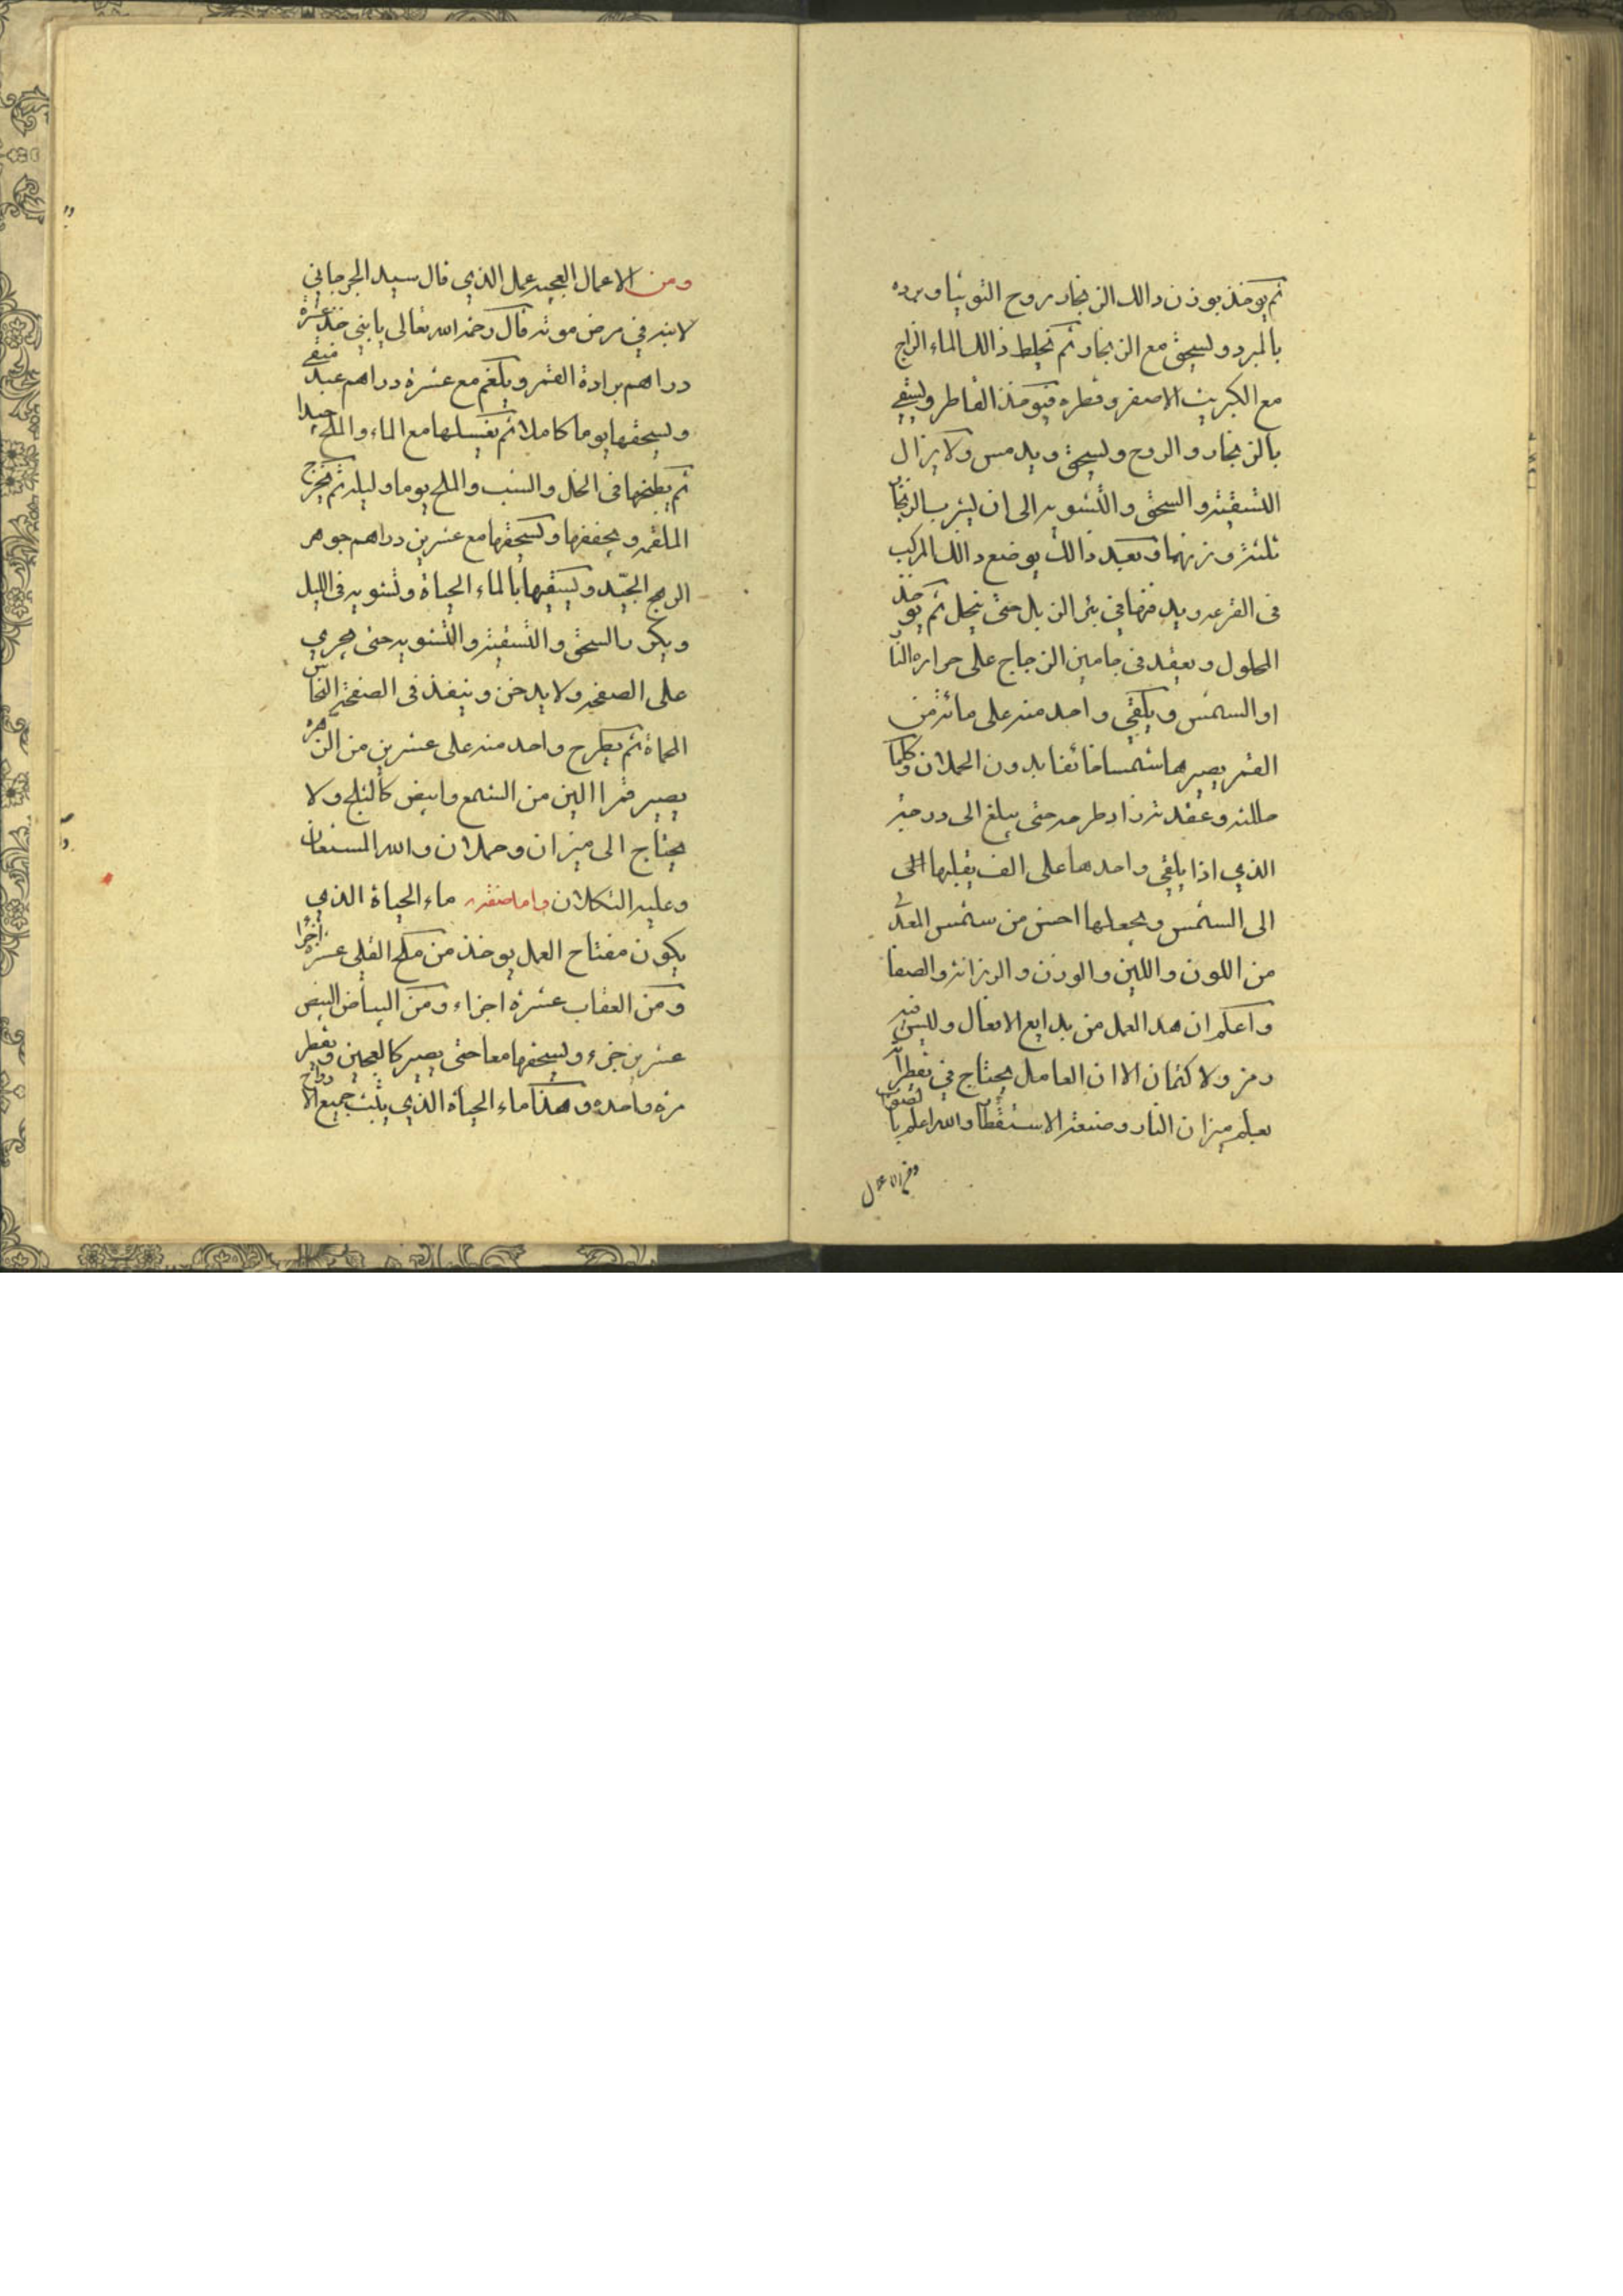 ثم يوخذ بوزن دالك الزنجار روح التوتيا وبرده
بالمبرد ويسحق مع الزنجار ثم تخلط ذالك الماء الزاج
مع الكبريت الاصفر وقطره فيوخذ القاطر ويسقي
بالزنجار والروح ويسحق ويدمس ولا يزال
التسقية والسحق والتشويه الى ان يشرب الزنجار
ثلثة وزنهما وبعد ذالك يوضع دالك المركب
فى القرعه ويدفنها في بئر الزبل حتى ينحل ثم يوخذ
المحلول ويعقد فى جامين الزجاج على حراره النار
او الشمس ويلقي واحد منه على مائة من
القمر يصيرها شمسا فائقا بدون الحملان وكلما
حللته وعقدته زاد طرحه حتى يبلغ الى درجة
الذي اذا يلقي واحدها على الف يقلبها الى
الى الشمس ويجعلها احسن من شمس المعدن
من اللون واللين والوزن والرزانة والصفا
واعلم ان هد العمل من بدايع الافعال وليس فيه
رمز ولا كتمان الا ان العامل يحتاج في تقطيرآ
يعلم ميزان النار وصنعة الاستقطآ والله اعلم بالصواب
ومن الاعمال
ومن الاعمال العجيبه عمل الذي قال سيد الجرجاني
لابنه في مرض موته قال رحمة الله تعالى يا بني خذ عشرة
دراهم برادة القمر ويلغم مع عشرة دراهم عبد منقي
ويسحقها يوما كاملا ثم يغسلها مع الماء والملح جيدا
ثم يطبخها فى الخل والشب والملح يوما وليلة ثم يخرج
الملقمه ويجففها ويسحقها مع عشرين دراهم جوهر
الرهج الجيّد ويسقيها بالماء الحياة وتشويه فى الليل
ويكرر السحق والتسقية والتشويه حتى يجري
على الصفحه ولا يدخن وينفذ فى الصفحة النحاس
المحماة ثم يطرح واحد منه على عشرين من الزهره
يصير قمرا الين من الشمع وابيض كالثلج ولا
يحتاج الى ميزان وحملان والله المستعان
وعليه التكلان واما صنعة ماء الحياة الذي
يكون مفتاح العمل يوخذ من ملح القلي عشره اجزا
ومن العقاب عشرة اجزاء ومن البياض البيض
عشرين جزء ويسحقها معا حتى يصير كالعجين ويقطر
مرة واحده وهذا ماء الحياة الذي يثبت جميع الارواح